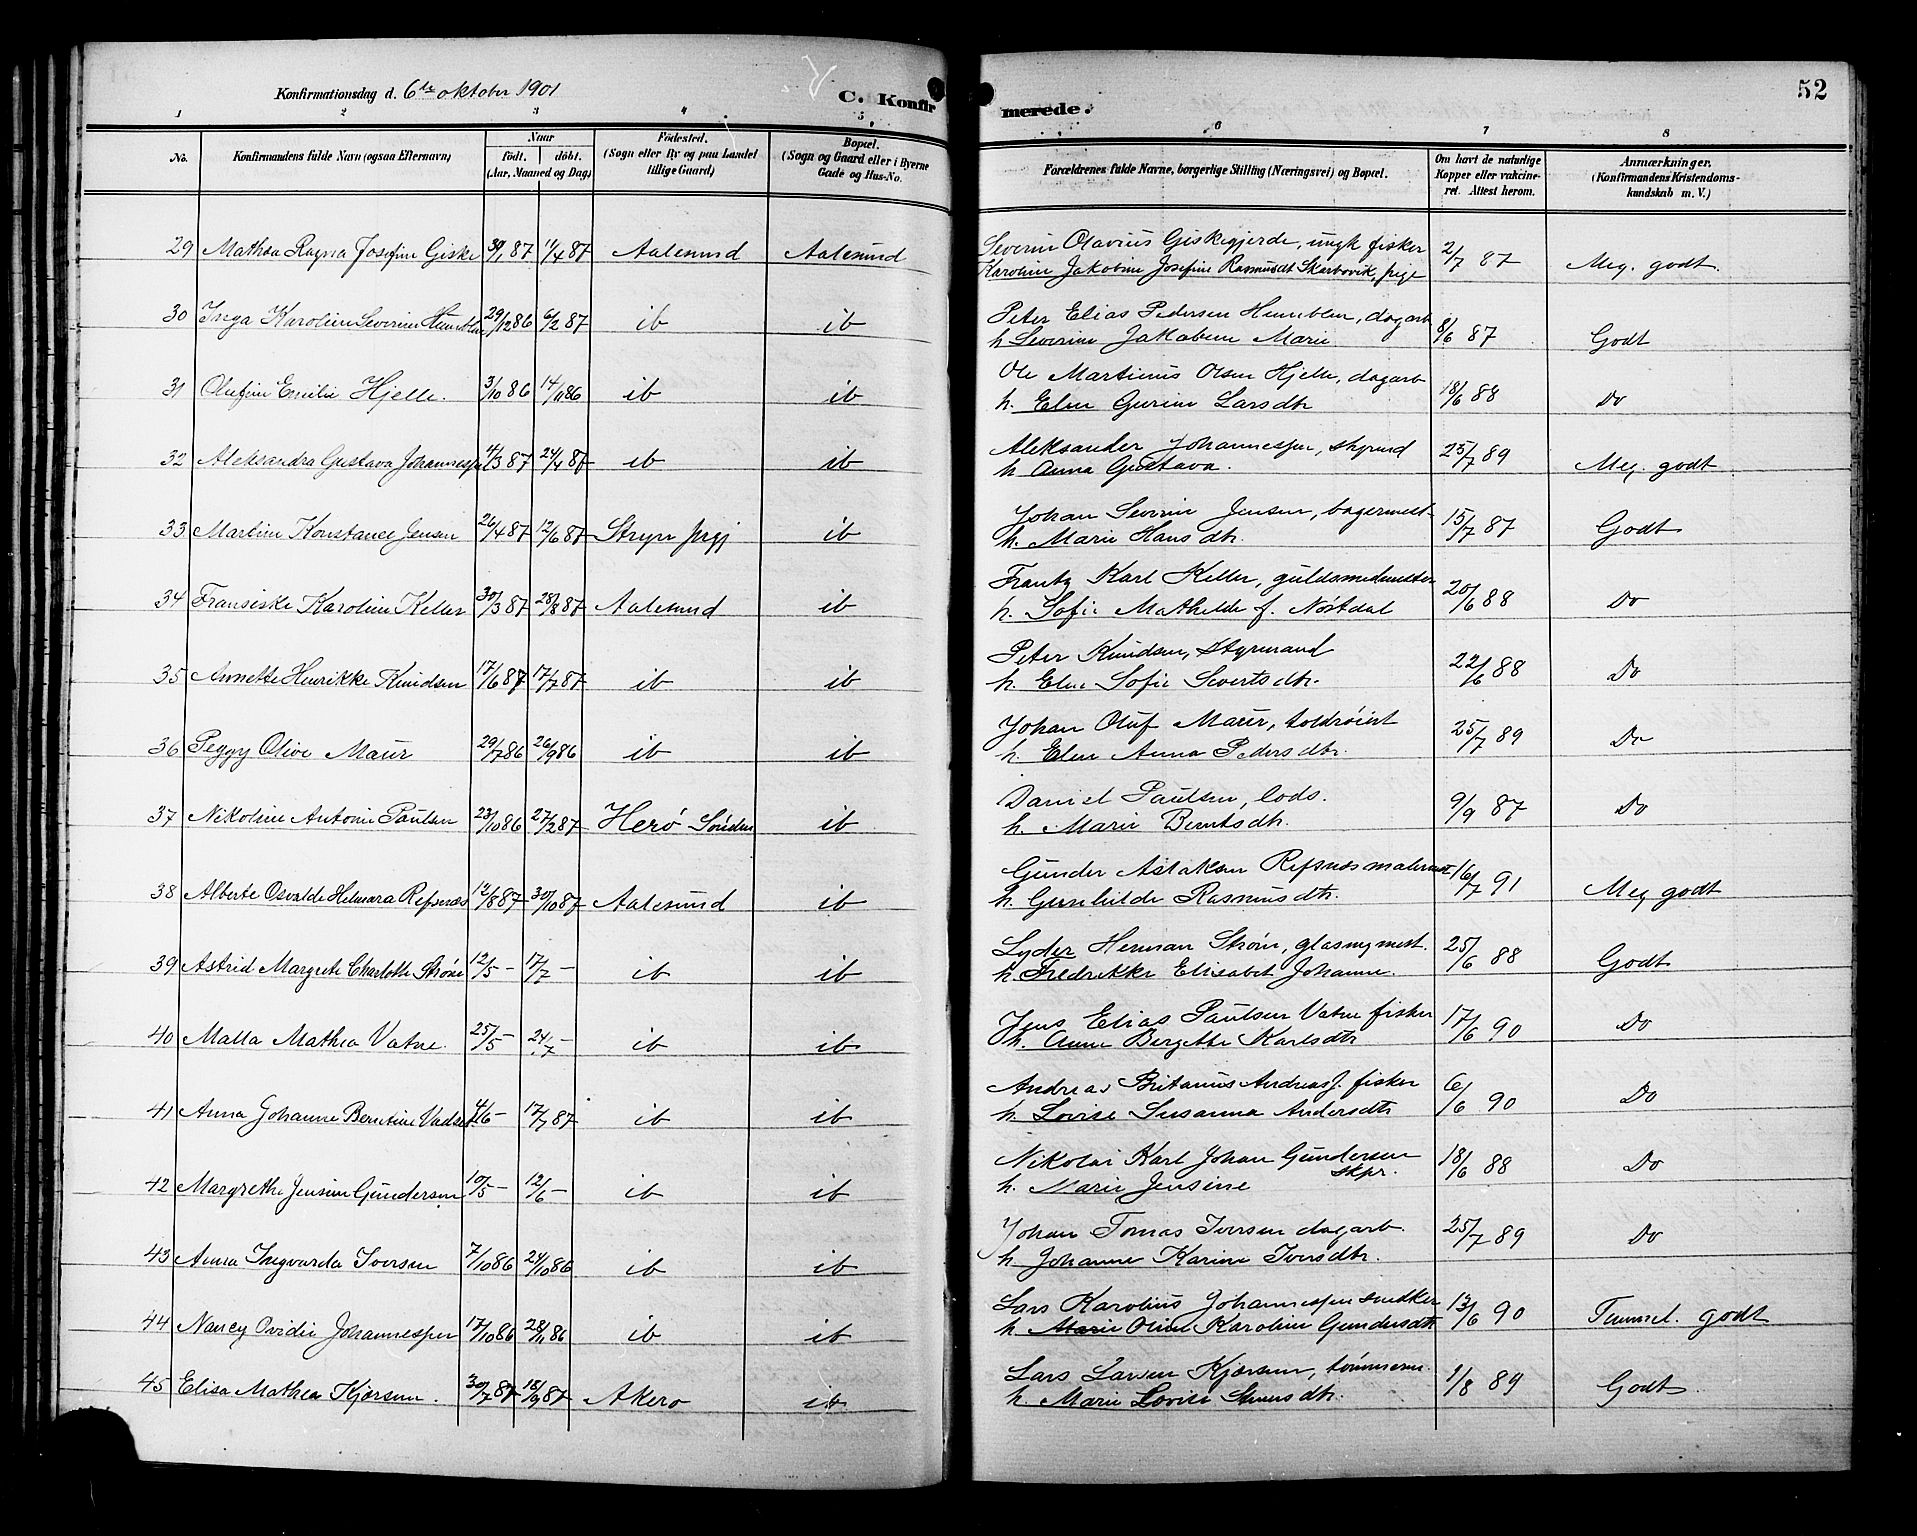 52
Konfirmationsdag d. 6te oktober 1901
C. Konfirmerede.
1 2 3 4 5 6 7 8
No. Konfirmandens fulde Navn (ogsaa Efternavn) Naar født. døbt. (Aar, Maaned og Dag) Fødested. (Sogn eller By og paa Landet tillige Gaard) Bopæl. (Sogn og Gaard eller i Byerne Gade og Hus-No. Forældrenes fulde Navne, borgerlige Stilling (Næringsvei) og Bopæl. Om havt de naturlige Kopper eller vakcineret. Attest herom. Anmærkninger. (Konfirmandens Kristendomskundskab m. V.)
29 Mathea Ragna Josefine Giske 30/1 87 11/4 87 Aalesund Aalesund Severin Olavius Giskegjerde, ungk fisker 2/7 87 Meg. godt.
Karoline Jakobine Josefine Rasmusdt Skarbovik, pige
30 Inga Karoline Severine 29/12 86 6/2 87 ib ib Peter Elias Pedersen, dagarb 8/6 87 Godt
h. Severine Jakobine Marie
31 Olufine Emilie Hjelle. 3/10 86 14/11 86 ib ib Ole Martinus Olsen Hjelle, dagarb 18/6 88 Do
h. Elen Gurine Larsdtr
32 Aleksandra Gustava Johannessen 4/3 87 24/4 87 ib ib Aleksander Johannessen, styrmd 25/7 89 Meg. godt
h. Anna Gustava.
33 Martine Konstance Jensen 26/4 87 12/6 87 Stryn prgj ib Johan Severin Jensen, bagermest. 15/7 87 Godt
h. Marie Hansdtr.
34 Fransiske Karoline Keller 30/3 87 28/8 87 Aalesund ib Frantz Karl Keller, guldsmedmester 20/6 88 Do
h. Sofie Mathilde f. Nøstdal
35 Annette Henrikke Knudsen 17/6 87 17/7 87 ib ib Peter Knudsen, Styrmand 22/6 88 Do
h. Elen Sofie Sivertsdtr.
36 Peggy Olive Maur 29/7 86 26/9 86 ib ib Johan Oluf Maur, toldrøiert 25/7 89 Do
h. Elen Anna Pedersdtr.
37 Nikoline Antonie Paulsen 23/10 86 27/2 87 Herø Søndm ib Daniel Paulsen, lods. 9/9 87 Do
h. Marie Berntsdtr.
38 Alberte Osvalde Helmara Refsnæs 12/8 87 30/10 87 Aalesund ib Gunder Aslaksen Refsnæs malermst 16/7 91 Meg godt
h. Gunhilde Rasmusdtr.
39 Astrid Margrete Charlotte Strøm 12/5 - 17/7 - ib ib Lyder Herman Strøm, glasmgmest. 25/6 88 Godt
h. Fredrikke Elisabet Johanne.
40 Malla Mathea Vatne. 25/5 - 24/7 - ib ib Jens Elias Paulsen Vatne fisker 17/6 90 Do
h. Anne Bergette Karlsdtr
41 Anna Johanne Berntine 4/6 - 17/7 87 ib ib Andreas Britanus Andreasf. fisker 6/6 90 Do
h. Lovise Susanna Andersdtr
42 Margrethe Jensine Gundersen 10/5 - 12/6 - ib ib Nikolai Karl Johan Gundersen skpr. 18/6 88 Do
h. Marie Jensine
43 Anna Ingvarda Iversen 7/10 86 24/10 86 ib ib Johan Tomas Iversen dagarb. 25/7 89 Do
h. Johanne Karine Iversdtr.
44 Nancy Ovidie Johannessen 17/10 86 28/11 86 ib ib Lars Karolius Johannessen snedker 13/6 90 Temmel. godt
h. Marie Oline Karoline Gundersdtr
45 Elisa Mathea Kjærsem. 30/7 87 18/9 87 Akerø ib Lars Larsen Kjærsem, tømmerm. 1/8 89 Godt.
h. Marie Lovise